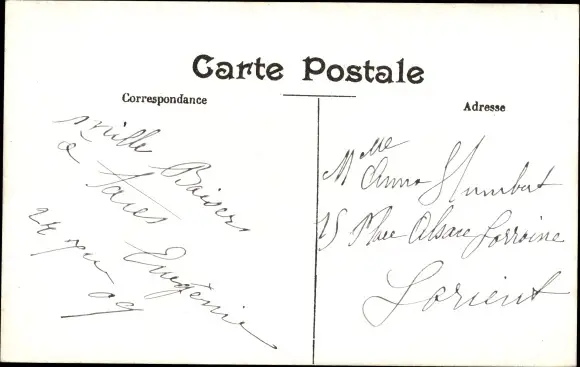 Carte Postale
Correspondance
Adresse
Mille Baisers
à
Eugénie
09
Mlle
Anna Humbert
15 Place Alsace Lorraine
Lorient